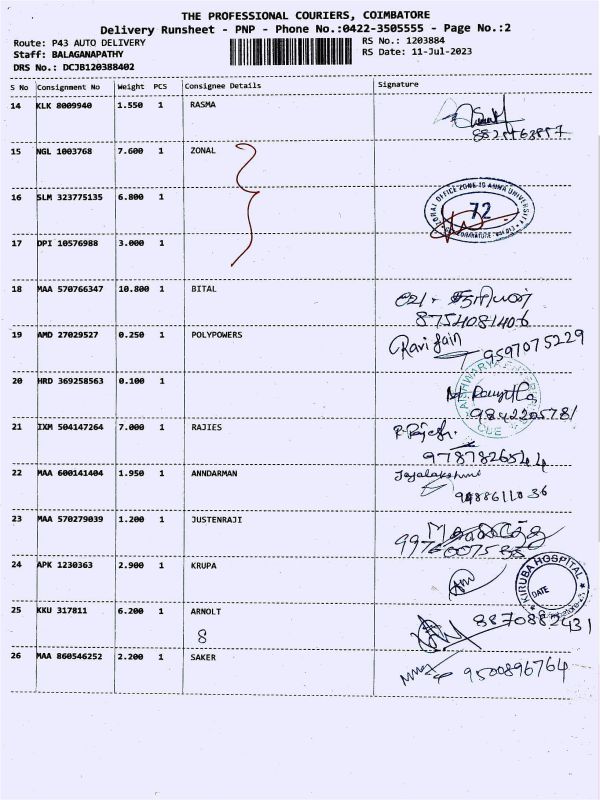 THE PROFESSIONAL COURIERS, COIMBATORE
Delivery Runsheet - PNP - Phone No.:0422-3505555 - Page No.:2
Route: P43 AUTO DELIVERY RS No.: 1203884
Staff: BALAGANAPATHY RS Date: 11-Jul-2023
DRS No.: DCJB120388402
S No Consignment No Weight PCS Consignee Details Signature
14 KLK 8009940 1.550 1 RASMA
15 NGL 1003768 7.600 1 ZONAL
16 SLM 323775135 6.800 1
72
17 DPI 10576988 3.000 1
18 MAA 570766347 10.800 1 BITAL
8754081406
19 AMD 27029527 0.250 1 POLYPOWERS
Ravi Jain 9597075229
20 HRD 369258563 0.100 1
9842205781
21 IXM 504147264 7.000 1 RAJIES
R. Rajesh.
9787826544
22 MAA 600141404 1.950 1 ANNDARMAN
Jayalakshmi
9488611036
23 MAA 570279039 1.200 1 JUSTENRAJI
24 APK 1230363 2.900 1 KRUPA
KIRUBA HOSPITAL
DATE
25 KKU 317811 6.200 1 ARNOLT
8870882431
8
26 MAA 860546252 2.200 1 SAKER
9500896764